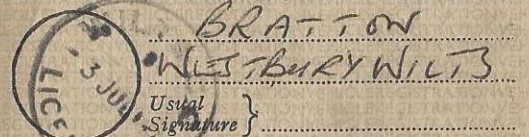 BRATTON
WESTBURY WILTS
3 JUL
LICE
Usual
Signature }